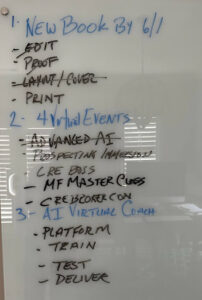 1- New Book By 6/1
- EDIT
- PROOF
- LAYOUT/COVER
- PRINT
2- 4 Virtual Events
- ADVANCED AI
PROSPECTING IMMERSION
CRE
- MF MASTER CLASS
- CREISCORERCON
3- AI Virtual Coach
- PLATFORM
- TRAIN
- TEST
- DELIVER